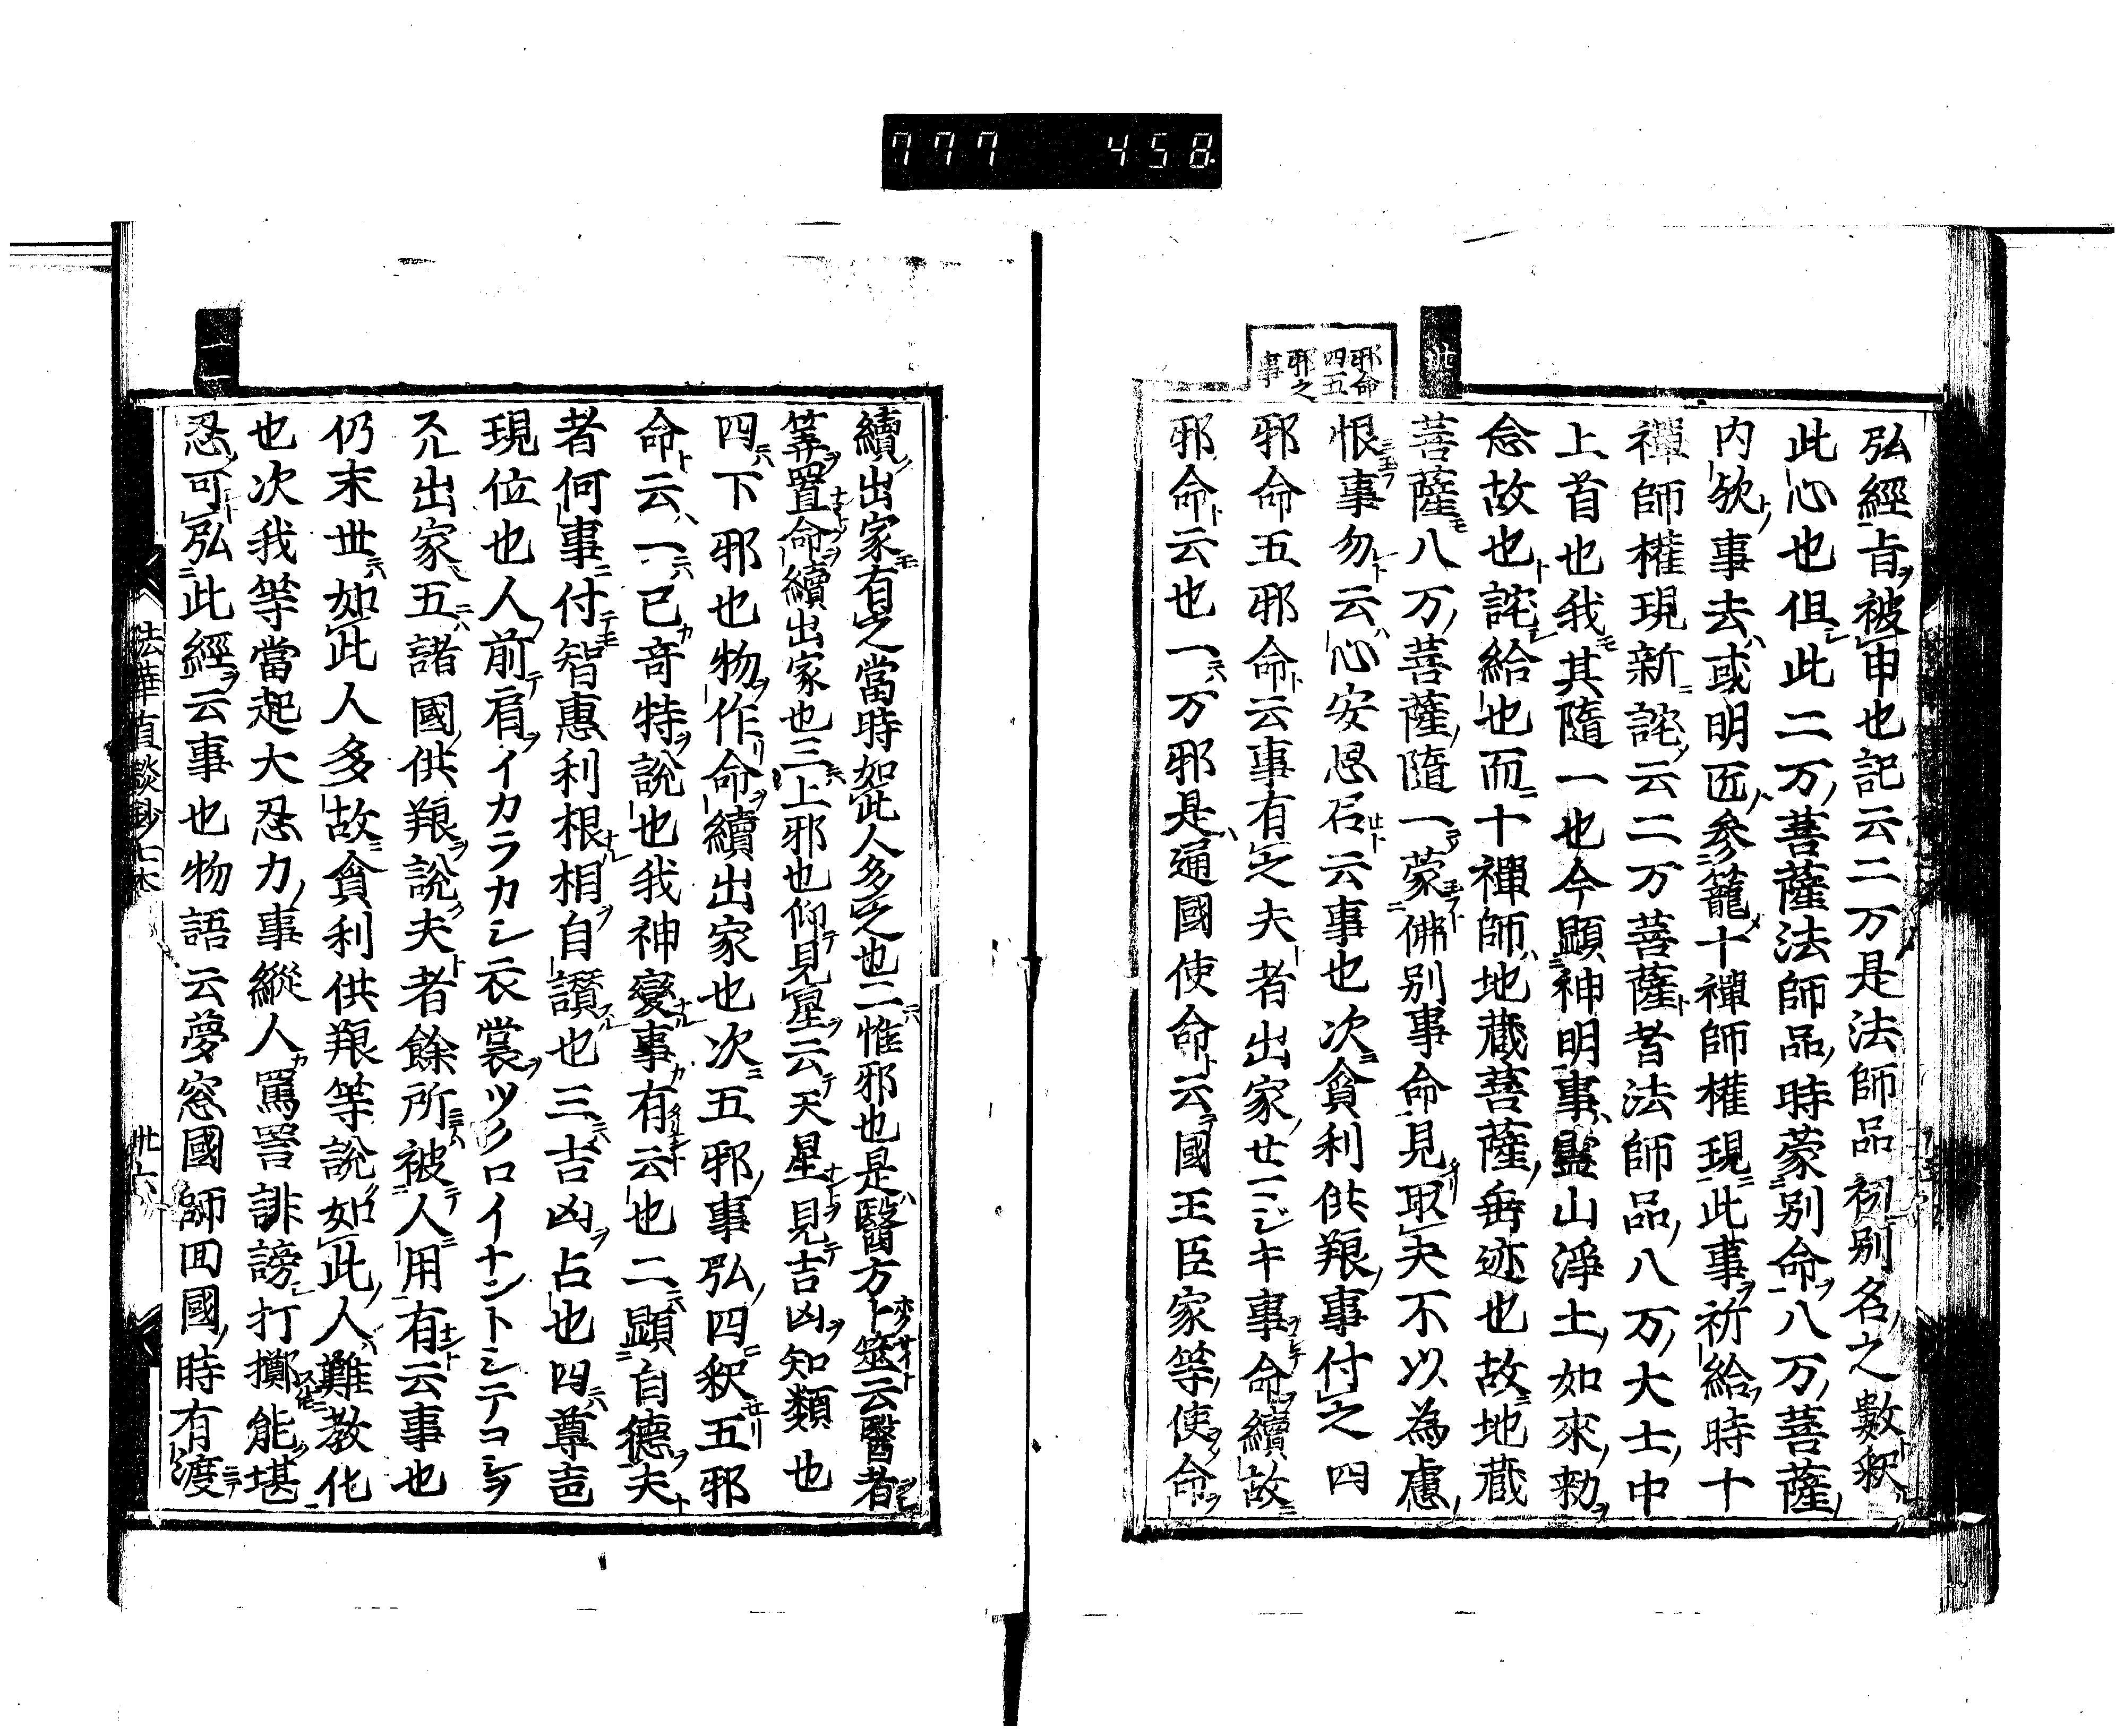 777 458
邪命
四五
邪之
事
弘經旨ヲ被申也記云二万是法師品初別名之數釈
此心也但此二万菩薩法師品時蒙別命八万菩薩
内欤事去或明匠參籠十禪師權現此事ヲ祈給時十
禪師權現新詫云二万菩薩者法師品八万大士中
上首也我其隨一也今顕神明事靈山淨土如來勅
念故也詫給也而十禪師地藏菩薩垂迹也故地藏
菩薩八万菩薩隨一蒙佛別事命見取夫不以為慮
恨事勿云心安思召云事也次貪利供粮事付之四
邪命五邪命云事有之夫者出家世ニシキ事命續故
邪命云也一万邪是通國使命云國王臣家等使命
續出家有之當時如此人多之也二惟邪也是醫方卜筮云醫者
筭置命續出家也三上邪也仰見星云天星見吉凶知類也
四下邪也物作命續出家也次五邪事弘四釈五邪
命云一己奇特説也我神變事有云也二顕自德夫
者何事付智惠利根相自讃也三吉凶占也四尊言
現位也人前肩イカラカシ衣裳ツクロイナントシテコハラ
ス出家五諸國供粮説夫者餘所被人用有云事也
仍末世如此人多故貪利供粮等説如此人難教化
也次我等當起大忍力事縱人罵詈誹謗打擲能堪
忍可弘此經云事也物語云夢窓國師回國時有渡
法華直談鈔七本 卅六